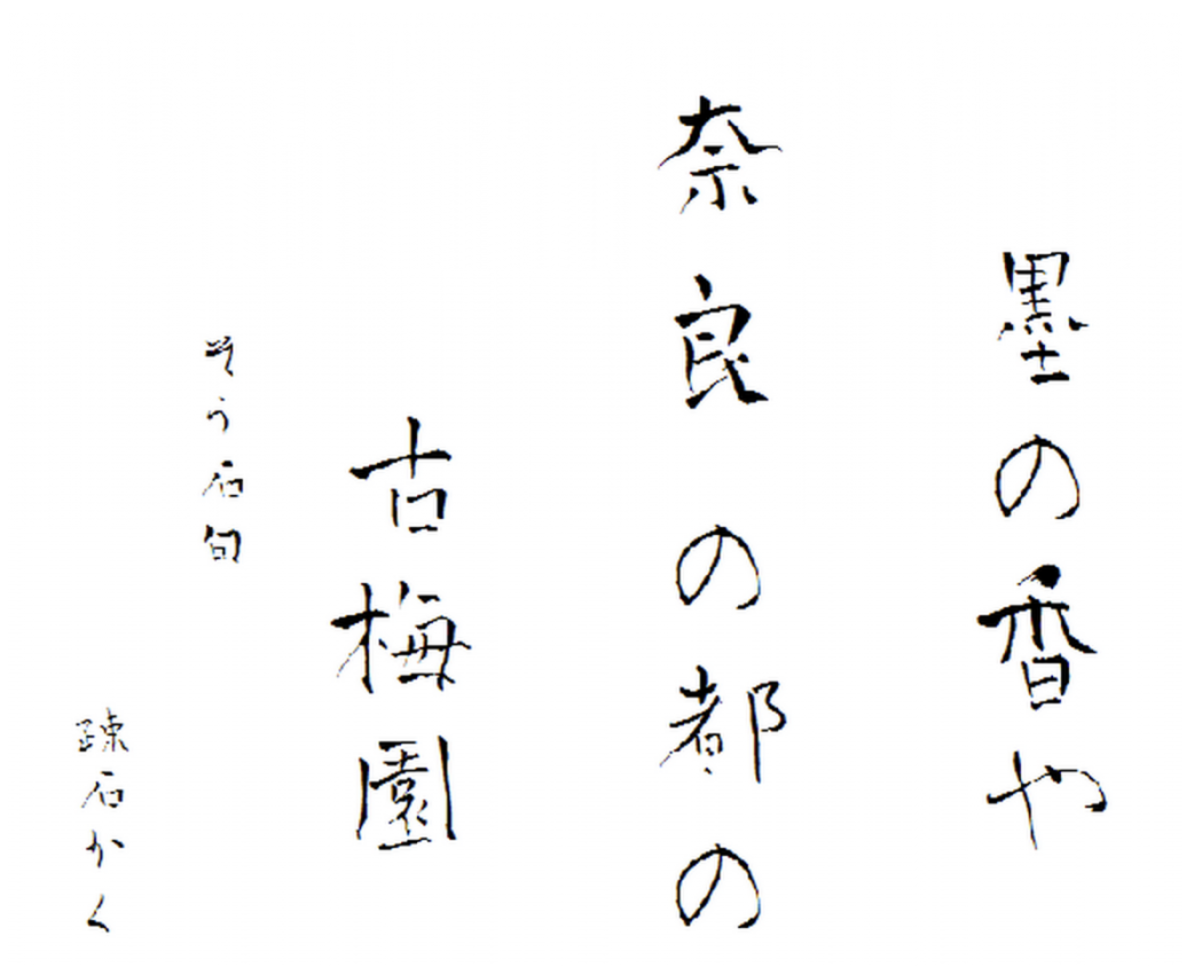 墨の香や
奈良の都の
古梅園
そう石句
踈石かく